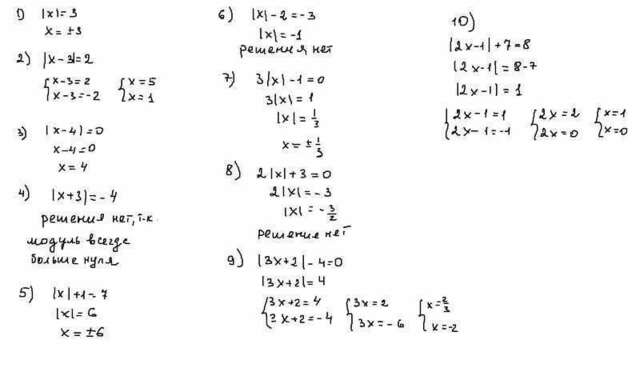 1) |x|=3
x=±3
2) |x-3|=2
{ x-3=2 { x=5
x-3=-2 x=1
3) |x-4|=0
x-4=0
x=4
4) |x+3|=-4
решения нет, т.к
модуль всегда
больше нуля
5) |x|+1=7
|x|=6
x=±6
6) |x|-2=-3
|x|=-1
решения нет
7) 3|x|-1=0
3|x|=1
|x|=1/3
x=±1/3
8) 2|x|+3=0
2|x|=-3
|x|=-3/2
решения нет
9) |3x+2|-4=0
|3x+2|=4
{ 3x+2=4 { 3x=2 { x=2/3
3x+2=-4 3x=-6 x=-2
10)
|2x-1|+7=8
|2x-1|=8-7
|2x-1|=1
{ 2x-1=1 { 2x=2 { x=1
2x-1=-1 2x=0 x=0